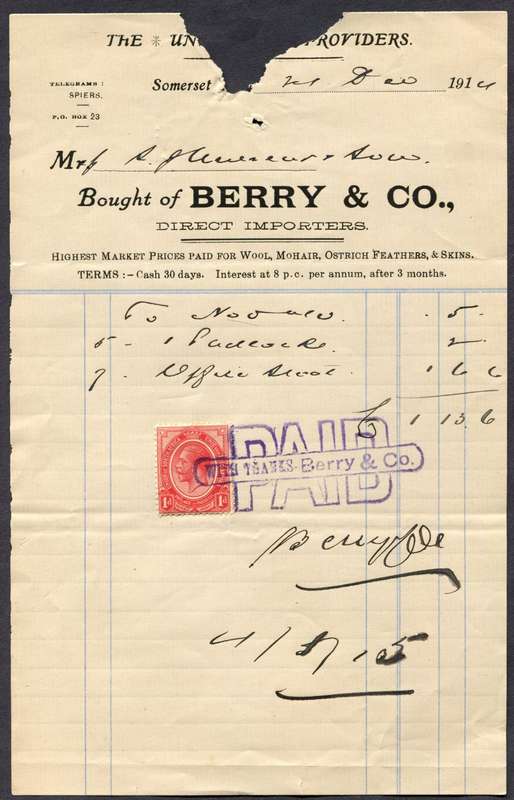 THE * UN PROVIDERS.
TELEGRAMS : Somerset Dec 1914
SPIERS.
P.O. BOX 23
& Son.
Bought of BERRY & CO.,
DIRECT IMPORTERS.
HIGHEST MARKET PRICES PAID FOR WOOL, MOHAIR, OSTRICH FEATHERS, & SKINS.
TERMS :- Cash 30 days. Interest at 8 p.c. per annum, after 3 months.
To . 5 .
5 - 1 Padlock 2 .
7 . Office Stool 1 6 6
£ 1 13. 6
PAID
WITH THANKS Berry & Co.
1d 1d
Berry & Co
4/5/15